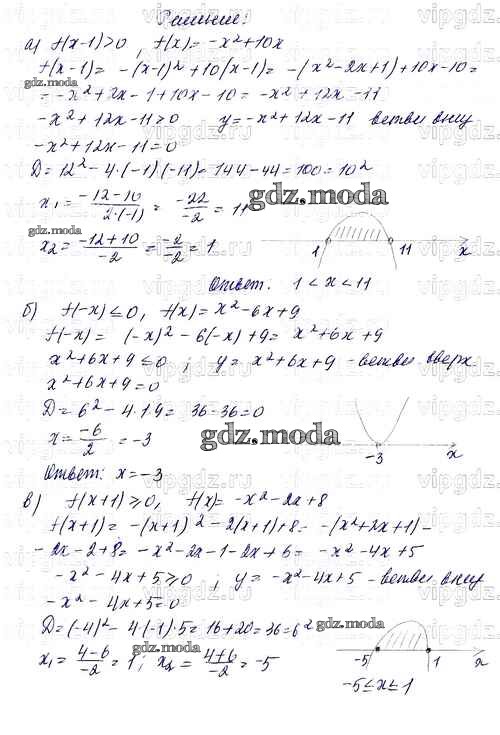 Решение:
а) f(x-1)>0, f(x)= -x²+10x
f(x-1)= -(x-1)²+10(x-1)= -(x²-2x+1)+10x-10=
= -x²+2x-1+10x-10= -x²+12x-11
gdz.moda
-x²+12x-11>0 y= -x²+12x-11 ветви вниз
-x²+12x-11=0
D=12²-4·(-1)(-11)=144-44=100=10²
x₁= (-12-10)/(2·(-1)) = -22/-2 = 11
gdz.moda
gdz.moda
x₂= (-12+10)/-2 = -2/-2 = 1
1 11 x
Ответ: 1<x<11
б) f(-x)≤0, f(x)= x²-6x+9
f(-x)= (-x)²-6(-x)+9= x²+6x+9
x²+6x+9≤0; y= x²+6x+9 - ветви вверх
x²+6x+9=0
D=6²-4·1·9= 36-36=0
x= -6/2 = -3
gdz.moda
-3 x
Ответ: x=-3
в) f(x+1)≥0, f(x)= -x²-2x+8
gdz.moda
f(x+1)= -(x+1)²-2(x+1)+8= -(x²+2x+1)-
-2x-2+8= -x²-2x-1-2x+6= -x²-4x+5
-x²-4x+5≥0, y= -x²-4x+5 - ветви вниз
-x²-4x+5=0
D=(-4)²-4·(-1)·5=16+20=36=6²
gdz.moda
x₁= (4-6)/-2 = 1; x₂= (4+6)/-2 = -5
-5 1 x
-5≤x≤1
vipgdz.ru